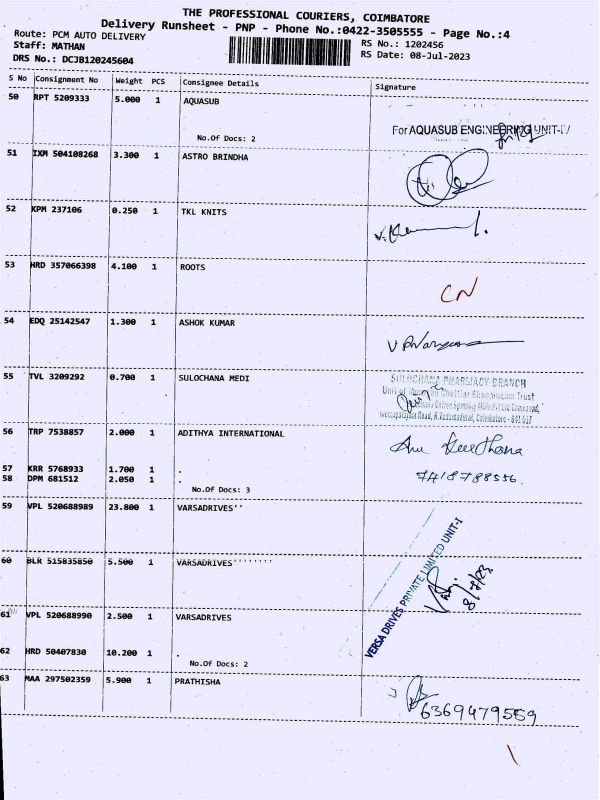 THE PROFESSIONAL COURIERS, COIMBATORE
Delivery Runsheet - PNP - Phone No.:0422-3505555 - Page No.:4
Route: PCM AUTO DELIVERY
Staff: MATHAN
DRS No.: DCJB120245604
RS No.: 1202456
RS Date: 08-Jul-2023
S No Consignment No Weight PCS Consignee Details Signature
50 RPT 5209333 5.000 1 AQUASUB
No.Of Docs: 2
For AQUASUB ENGINEERING UNIT-IV
51 IXM 504108268 3.300 1 ASTRO BRINDHA
52 KPM 237106 0.250 1 TKL KNITS
53 HRD 357066398 4.100 1 ROOTS
CN
54 EDQ 25142547 1.300 1 ASHOK KUMAR
55 TVL 3209292 0.700 1 SULOCHANA MEDI
SULOCHANA PHARMACY BRANCH
56 TRP 7538857 2.000 1 ADITHYA INTERNATIONAL
57 KRR 5768933 1.700 1 .
58 DPM 681512 2.050 1 .
No.Of Docs: 3
7418788556.
59 VPL 520688989 23.800 1 VARSADRIVES''
60 BLR 515835850 5.500 1 VARSADRIVES''''''''
VERSA DRIVES PRIVATE LIMITED UNIT-I
8/7/23
61 VPL 520688990 2.500 1 VARSADRIVES
62 HRD 50407830 10.200 1 .
No.Of Docs: 2
63 MAA 297502359 5.900 1 PRATHISHA
6369479559